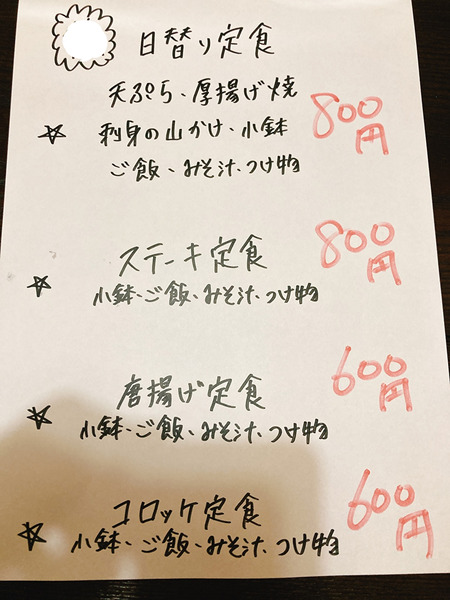 日替り定食
天ぷら、厚揚げ焼
刺身の山かけ、小鉢
ご飯、みそ汁、つけ物
800
円
ステーキ定食
小鉢、ご飯、みそ汁、つけ物
800
円
唐揚げ定食
小鉢、ご飯、みそ汁、つけ物
600
円
コロッケ定食
小鉢、ご飯、みそ汁、つけ物
600
円